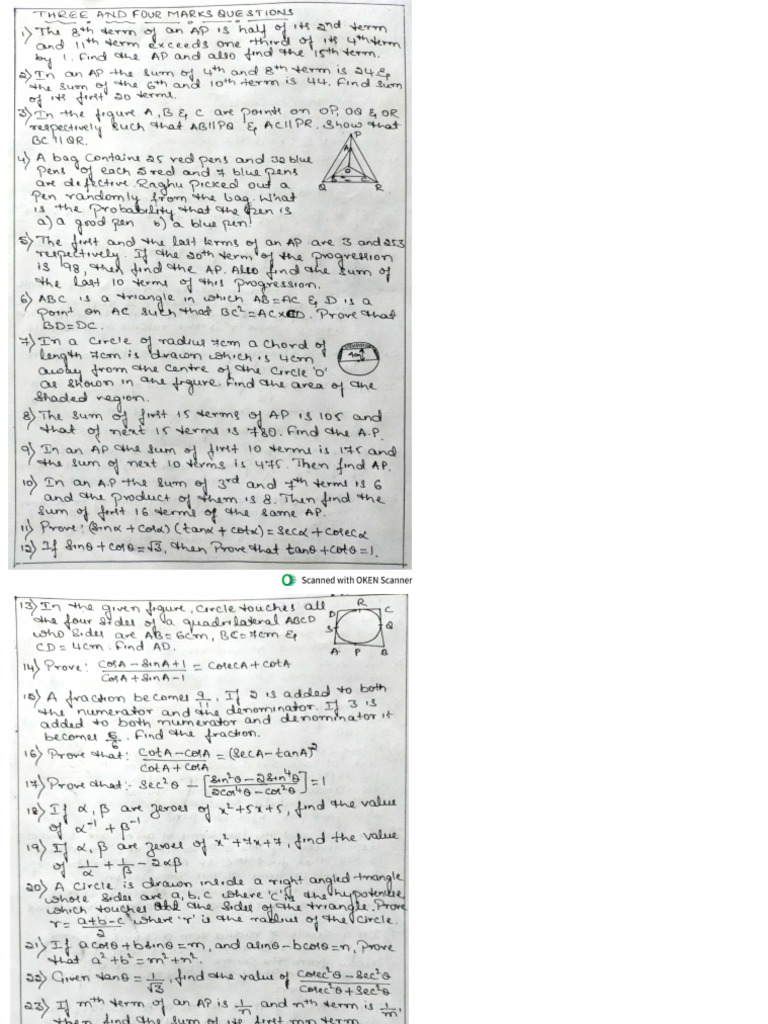 THREE AND FOUR MARKS QUESTIONS
1) The 8th term of an AP is half of its 2nd term
and 11th term exceeds one third of its 4th term
by 1. Find the AP and also find the 15th term.
2) In an AP the sum of 4th and 8th term is 24 &
the sum of the 6th and 10th term is 44. Find sum
of its first 20 terms.
3) In the figure A, B & C are points on OP, OQ & OR
respectively such that AB||PQ & AC||PR. Show that
BC||QR.
P
A
O
B C
Q R
4) A bag contains 25 red pens and 30 blue
pens of each 5 red and 7 blue pens
are defective. Raghu picked out a
pen randomly from the bag. What
is the probability that the pen is
a) a good pen b) a blue pen?
5) The first and the last terms of an AP are 3 and 253
respectively. If the 20th term of the progression
is 98, then find the AP. Also find the sum of
the last 10 terms of this progression.
6) ABC is a triangle in which AB=AC & D is a
point on AC such that BC²=AC×CD. Prove that
BD=DC.
7) In a circle of radius 7cm a chord of
length 7cm is drawn which is 4cm
away from the centre of the circle 'O'
as shown in the figure. Find the area of the
shaded region.
8) The sum of first 15 terms of AP is 105 and
that of next 15 terms is 780. Find the A.P.
9) In an AP the sum of first 10 terms is 175 and
the sum of next 10 terms is 475. Then find AP.
10) In an A.P the sum of 3rd and 7th terms is 6
and the product of them is 8. Then find the
sum of first 16 terms of the same AP.
11) Prove: (sinα + cosα) (tanα + cotα) = secα + cosecα
12) If sinθ + cosθ = √3, then Prove that tanθ + cotθ = 1.
Scanned with OKEN Scanner
13) In the given figure, circle touches all
the four sides of a quadrilateral ABCD
who sides are AB = 6cm, BC = 7cm &
CD = 4cm. Find AD.
D R C
S Q
A P B
14) Prove: (cosA - sinA + 1)/(cosA + sinA - 1) = cosecA + cotA
15) A fraction becomes 9/11, If 2 is added to both
the numerator and the denominator. If 3 is
added to both numerator and denominator it
becomes 5/6. Find the fraction.
16) Prove that: (cotA - cosA)/(cotA + cosA) = (secA - tanA)²
17) Prove that:- sec²θ - [(sin²θ - 2sin⁴θ)/(2cos⁴θ - cos²θ)] = 1
18) If α, β are zeroes of x² + 5x + 5, find the value
of α⁻¹ + β⁻¹
19) If α, β are zeroes of x² + 7x + 7, find the value
of 1/α + 1/β - 2αβ
20) A circle is drawn inside a right angled triangle
whose sides are a, b, c where 'c' is the hypotenuse
which touches all the sides of the triangle. Prove
r = (a+b-c)/2 where 'r' is the radius of the circle.
21) If acosθ + bsinθ = m, and asinθ - bcosθ = n, Prove
that a² + b² = m² + n².
22) Given tanθ = 1/√3, find the value of (cosec²θ - sec²θ)/(cosec²θ + sec²θ)
23) If mth term of an AP is 1/n and nth term is 1/m,
then find the sum of its first mn term